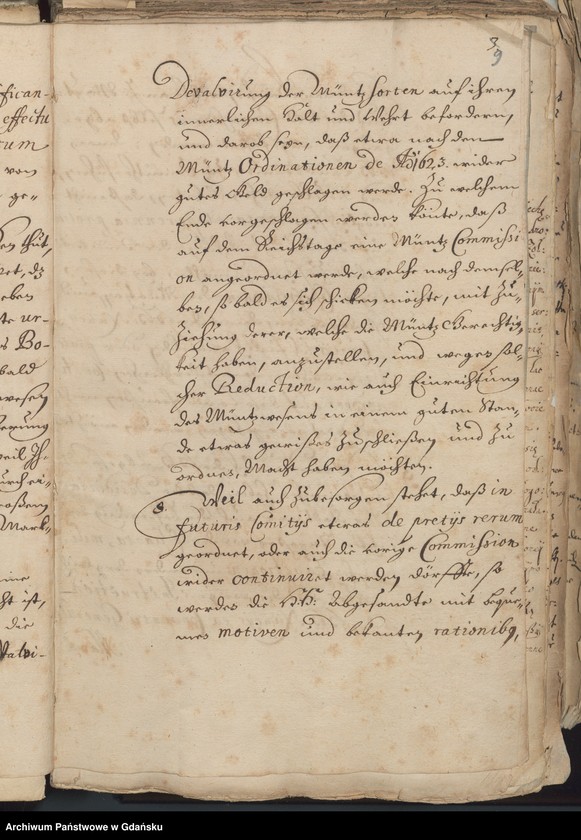 39
Devalvirung der Müntz sorten auf ihren
innerlichen Halt und Wehrt befordern,
und darob seyn, daß etwa nach den
Müntz Ordinationen de Aõ 1623. wider
gutes Geld geschlagen werde. Zu welchem
Ende vorgeschlagen werden könte, daß
auf dem Reichstage eine Müntz Commissi
on angeordnet werde, welche nach demsel-
ben, so bald es sich schicken möchte, mit Zu-
Ziehung derer, welche die Müntz Gerechtig
keit haben, anzustellen, und wegen sol-
cher Reduction, wie auch Einrichtung
des Müntzwesens in einem guten Stan-
de etwas gewisses Zuschließen und Zu
ordnen, Macht haben möchten.
8. Weil auch Zubesorgen stehet, daß in
futuris Comitijs etwas de pretijs rerum
geordnet, oder auch die vorige Commission
wider continuiret werden dörffte, so
werden die HH: Abgesandte mit beque-
men motiven und bekanten rationibq,
Archiwum Państwowe w Gdańsku